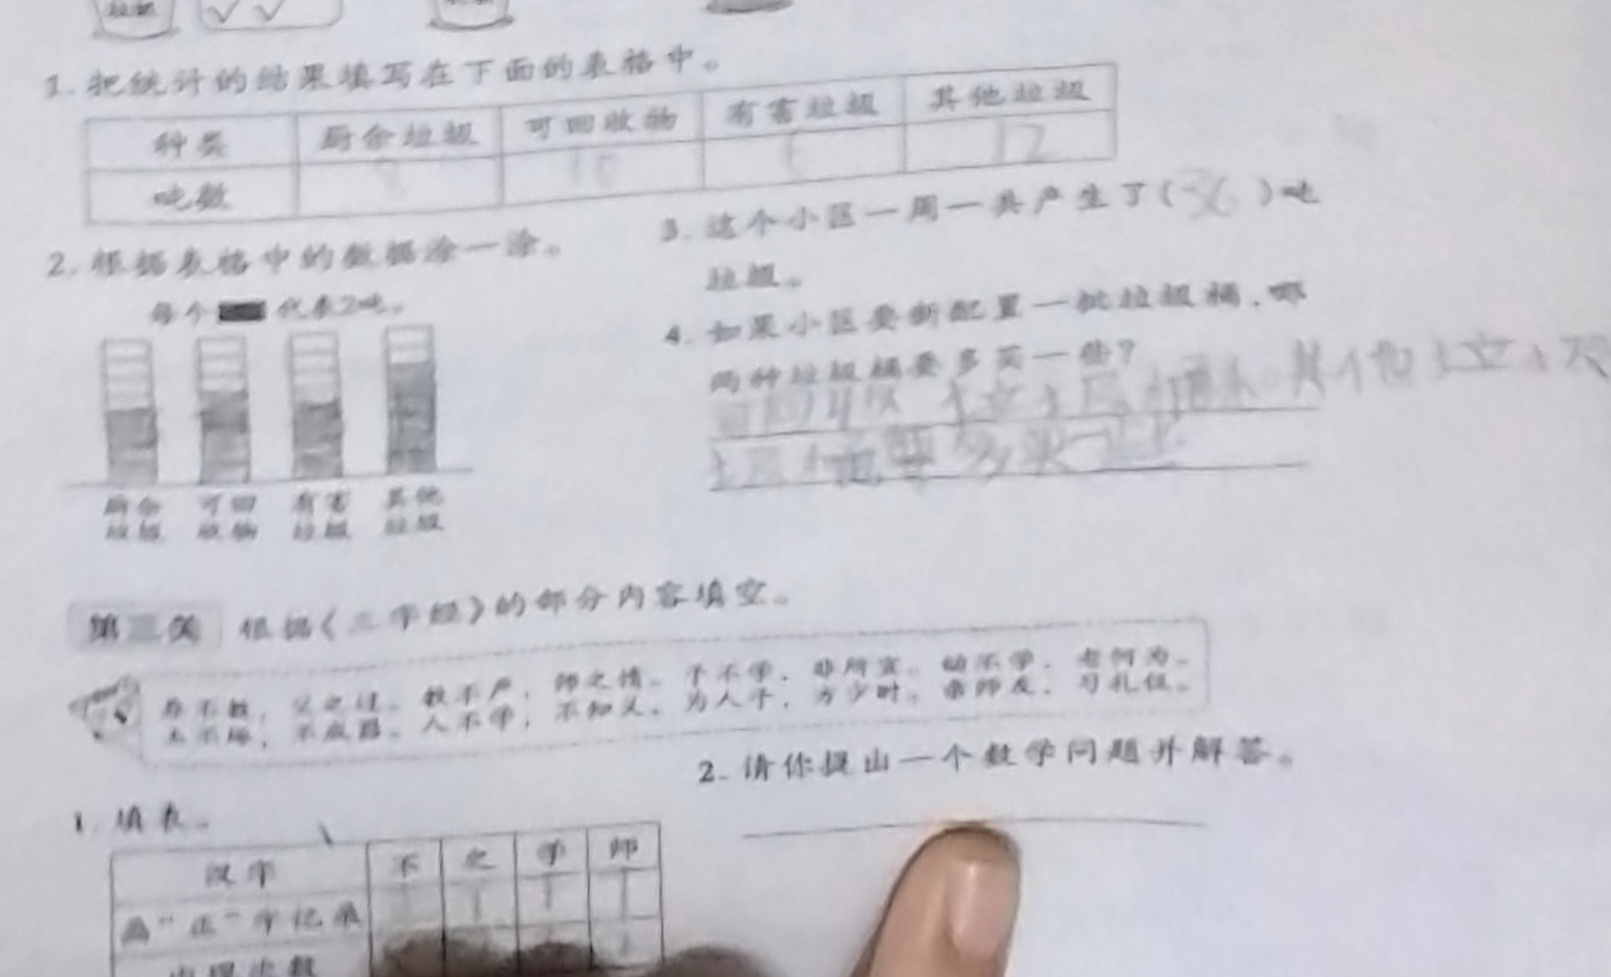 1. 把统计的结果填写在下面的表格中。
种类 厨余垃圾 可回收物 有害垃圾 其他垃圾
吨数 8 10 6 12
2. 根据表格中的数据涂一涂。
每个 代表2吨。
厨余垃圾 可回收物 有害垃圾 其他垃圾
3. 这个小区一周一共产生了(36)吨
垃圾。
4. 如果小区要新配置一批垃圾桶,哪
两种垃圾桶要多买一些?
可回收垃圾桶。其他垃圾
圾桶要多买一些
第三关 根据《三字经》的部分内容填空。
养不教,父之过。教不严,师之惰。子不学,非所宜。幼不学,老何为。
玉不琢,不成器。人不学,不知义。为人子,方少时。亲师友,习礼仪。
1. 填表。
汉字 不 之 学 师
画“正”字记录
出现次数
2. 请你提出一个数学问题并解答。